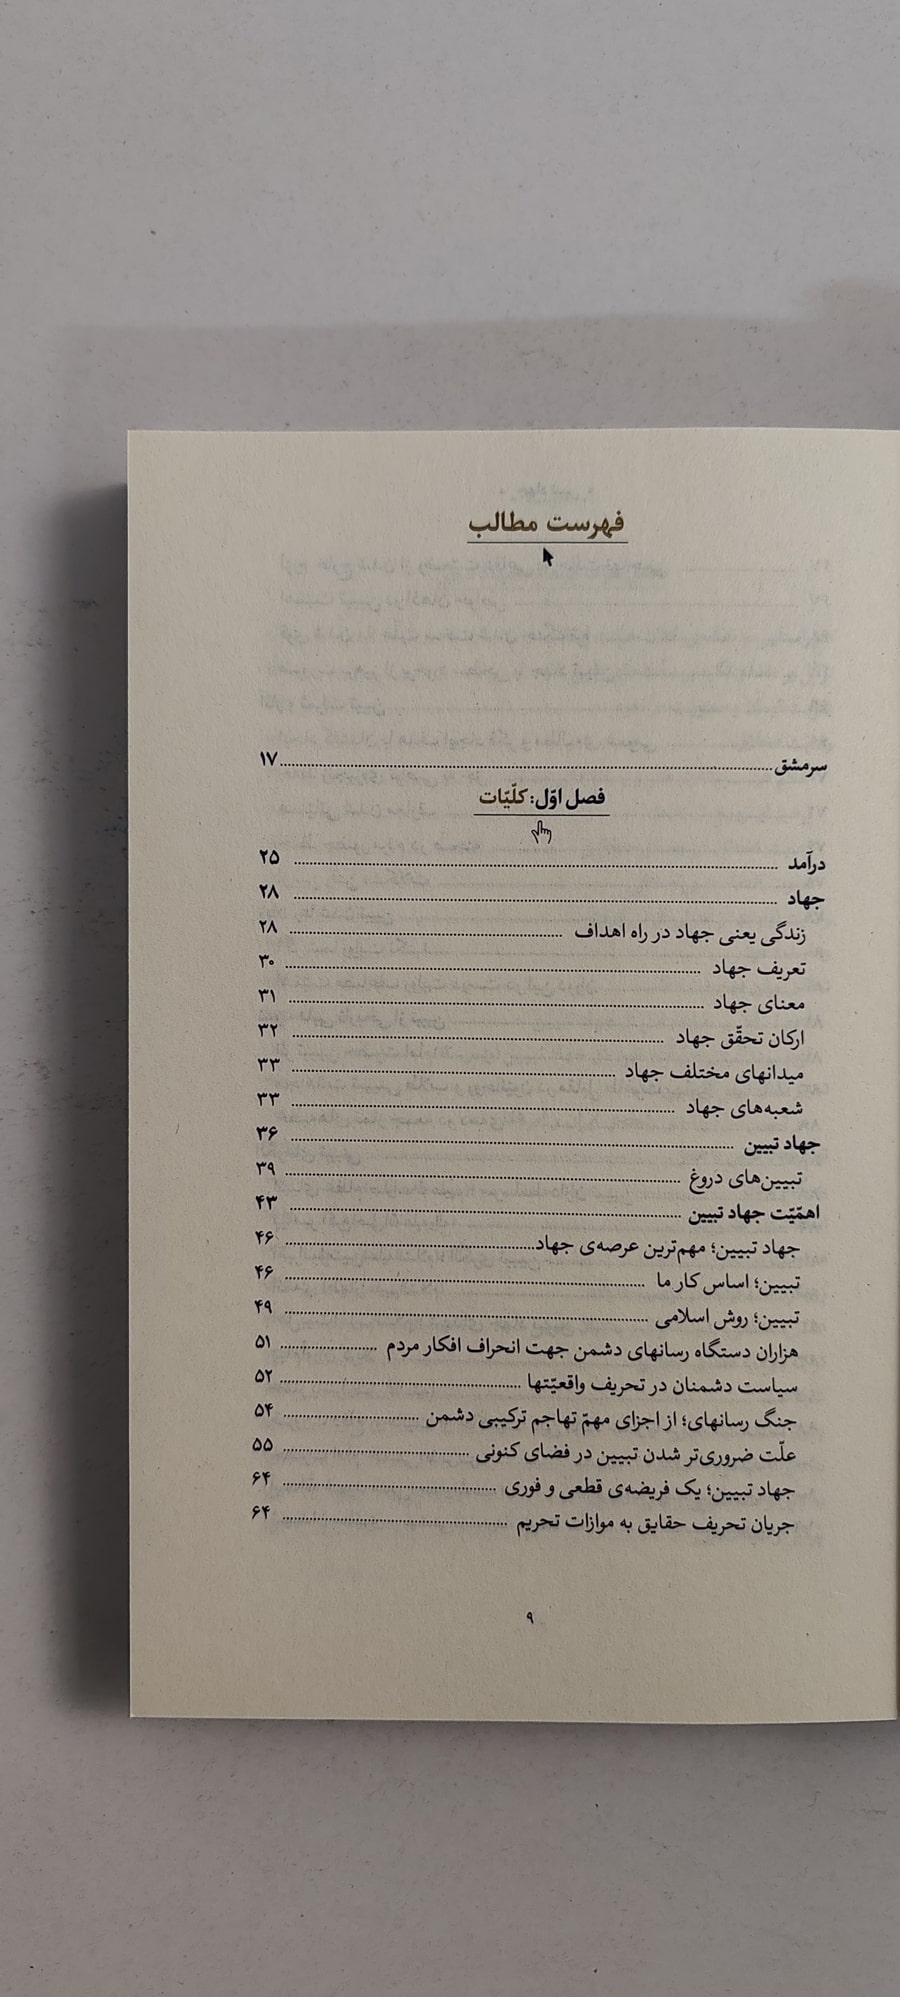 فهرست مطالب
سرمشق ........ ۱۷
فصل اوّل: کلّیّات
درآمد ........ ۲۵
جهاد ........ ۲۸
زندگی یعنی جهاد در راه اهداف ........ ۲۸
تعریف جهاد ........ ۳۰
معنای جهاد ........ ۳۱
ارکان تحقّق جهاد ........ ۳۲
میدانهای مختلف جهاد ........ ۳۳
شعبه‌های جهاد ........ ۳۳
جهاد تبیین ........ ۳۶
تبیین‌های دروغ ........ ۳۹
اهمّیّت جهاد تبیین ........ ۴۳
جهاد تبیین؛ مهم‌ترین عرصه‌ی جهاد ........ ۴۶
تبیین؛ اساس کار ما ........ ۴۶
تبیین؛ روش اسلامی ........ ۴۹
هزاران دستگاه رسانهای دشمن جهت انحراف افکار مردم ........ ۵۱
سیاست دشمنان در تحریف واقعیّتها ........ ۵۲
جنگ رسانهای؛ از اجزای مهمّ تهاجم ترکیبی دشمن ........ ۵۴
علّت ضروری‌تر شدن تبیین در فضای کنونی ........ ۵۵
جهاد تبیین؛ یک فریضه‌ی قطعی و فوری ........ ۶۴
جریان تحریف حقایق به موازات تحریم ........ ۶۴
۹